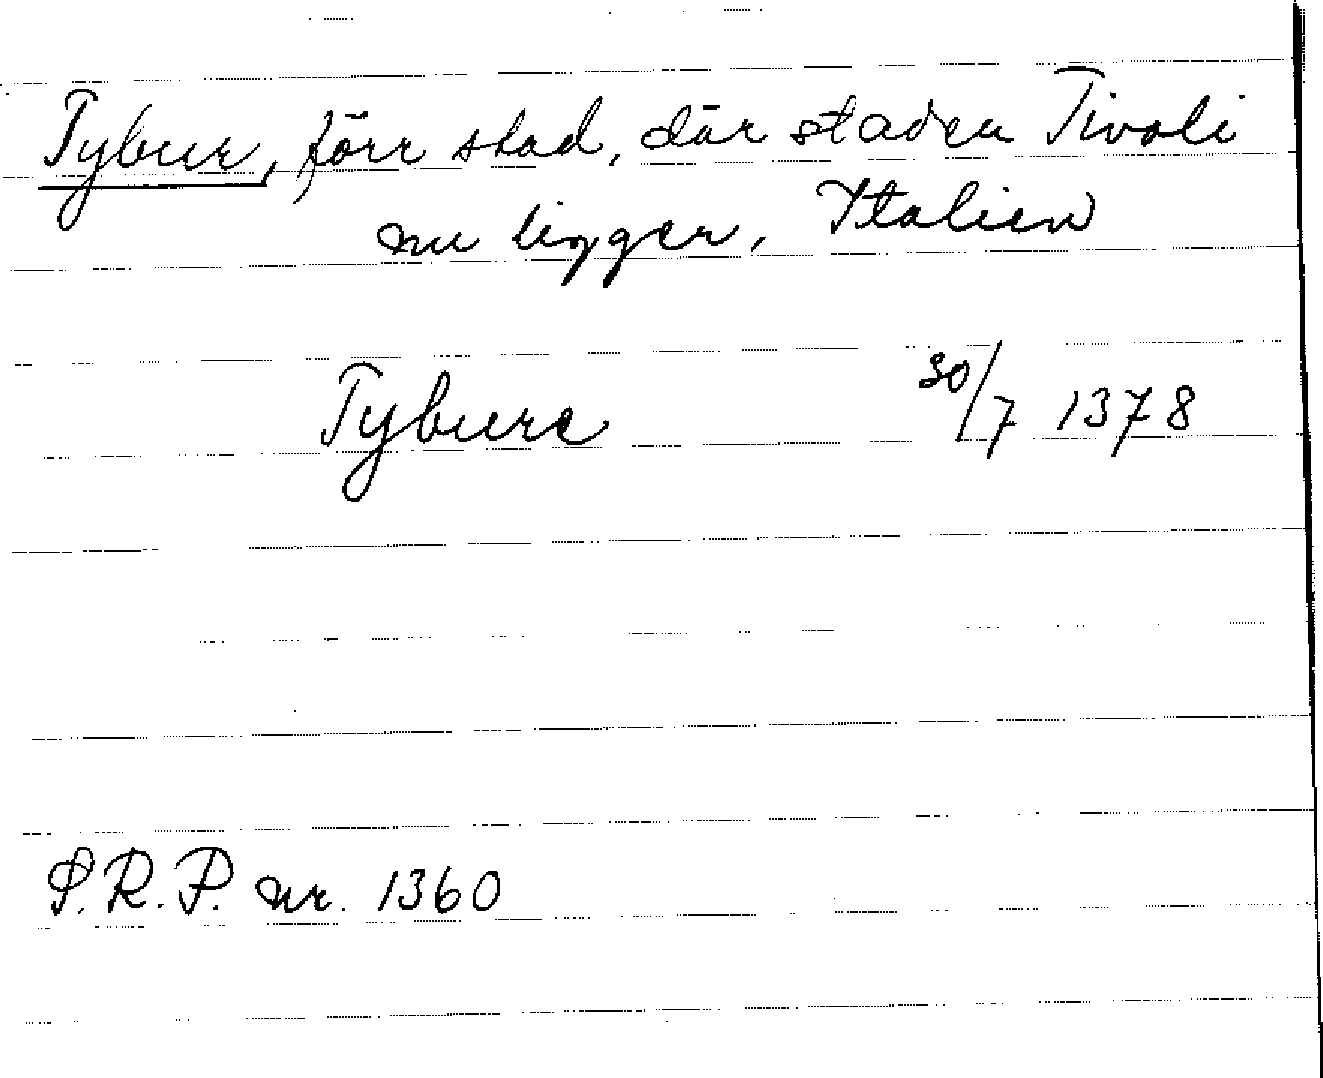 Tybur, förr stad, där staden Tivoli
nu ligger, Italien
Tybure 30/7 1378
S.R.P. nr. 1360